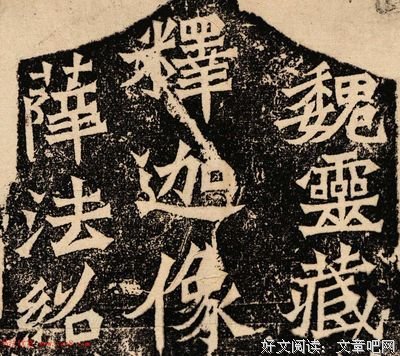 魏靈藏
釋迦像
薛法紹
好文阅读：文章吧网